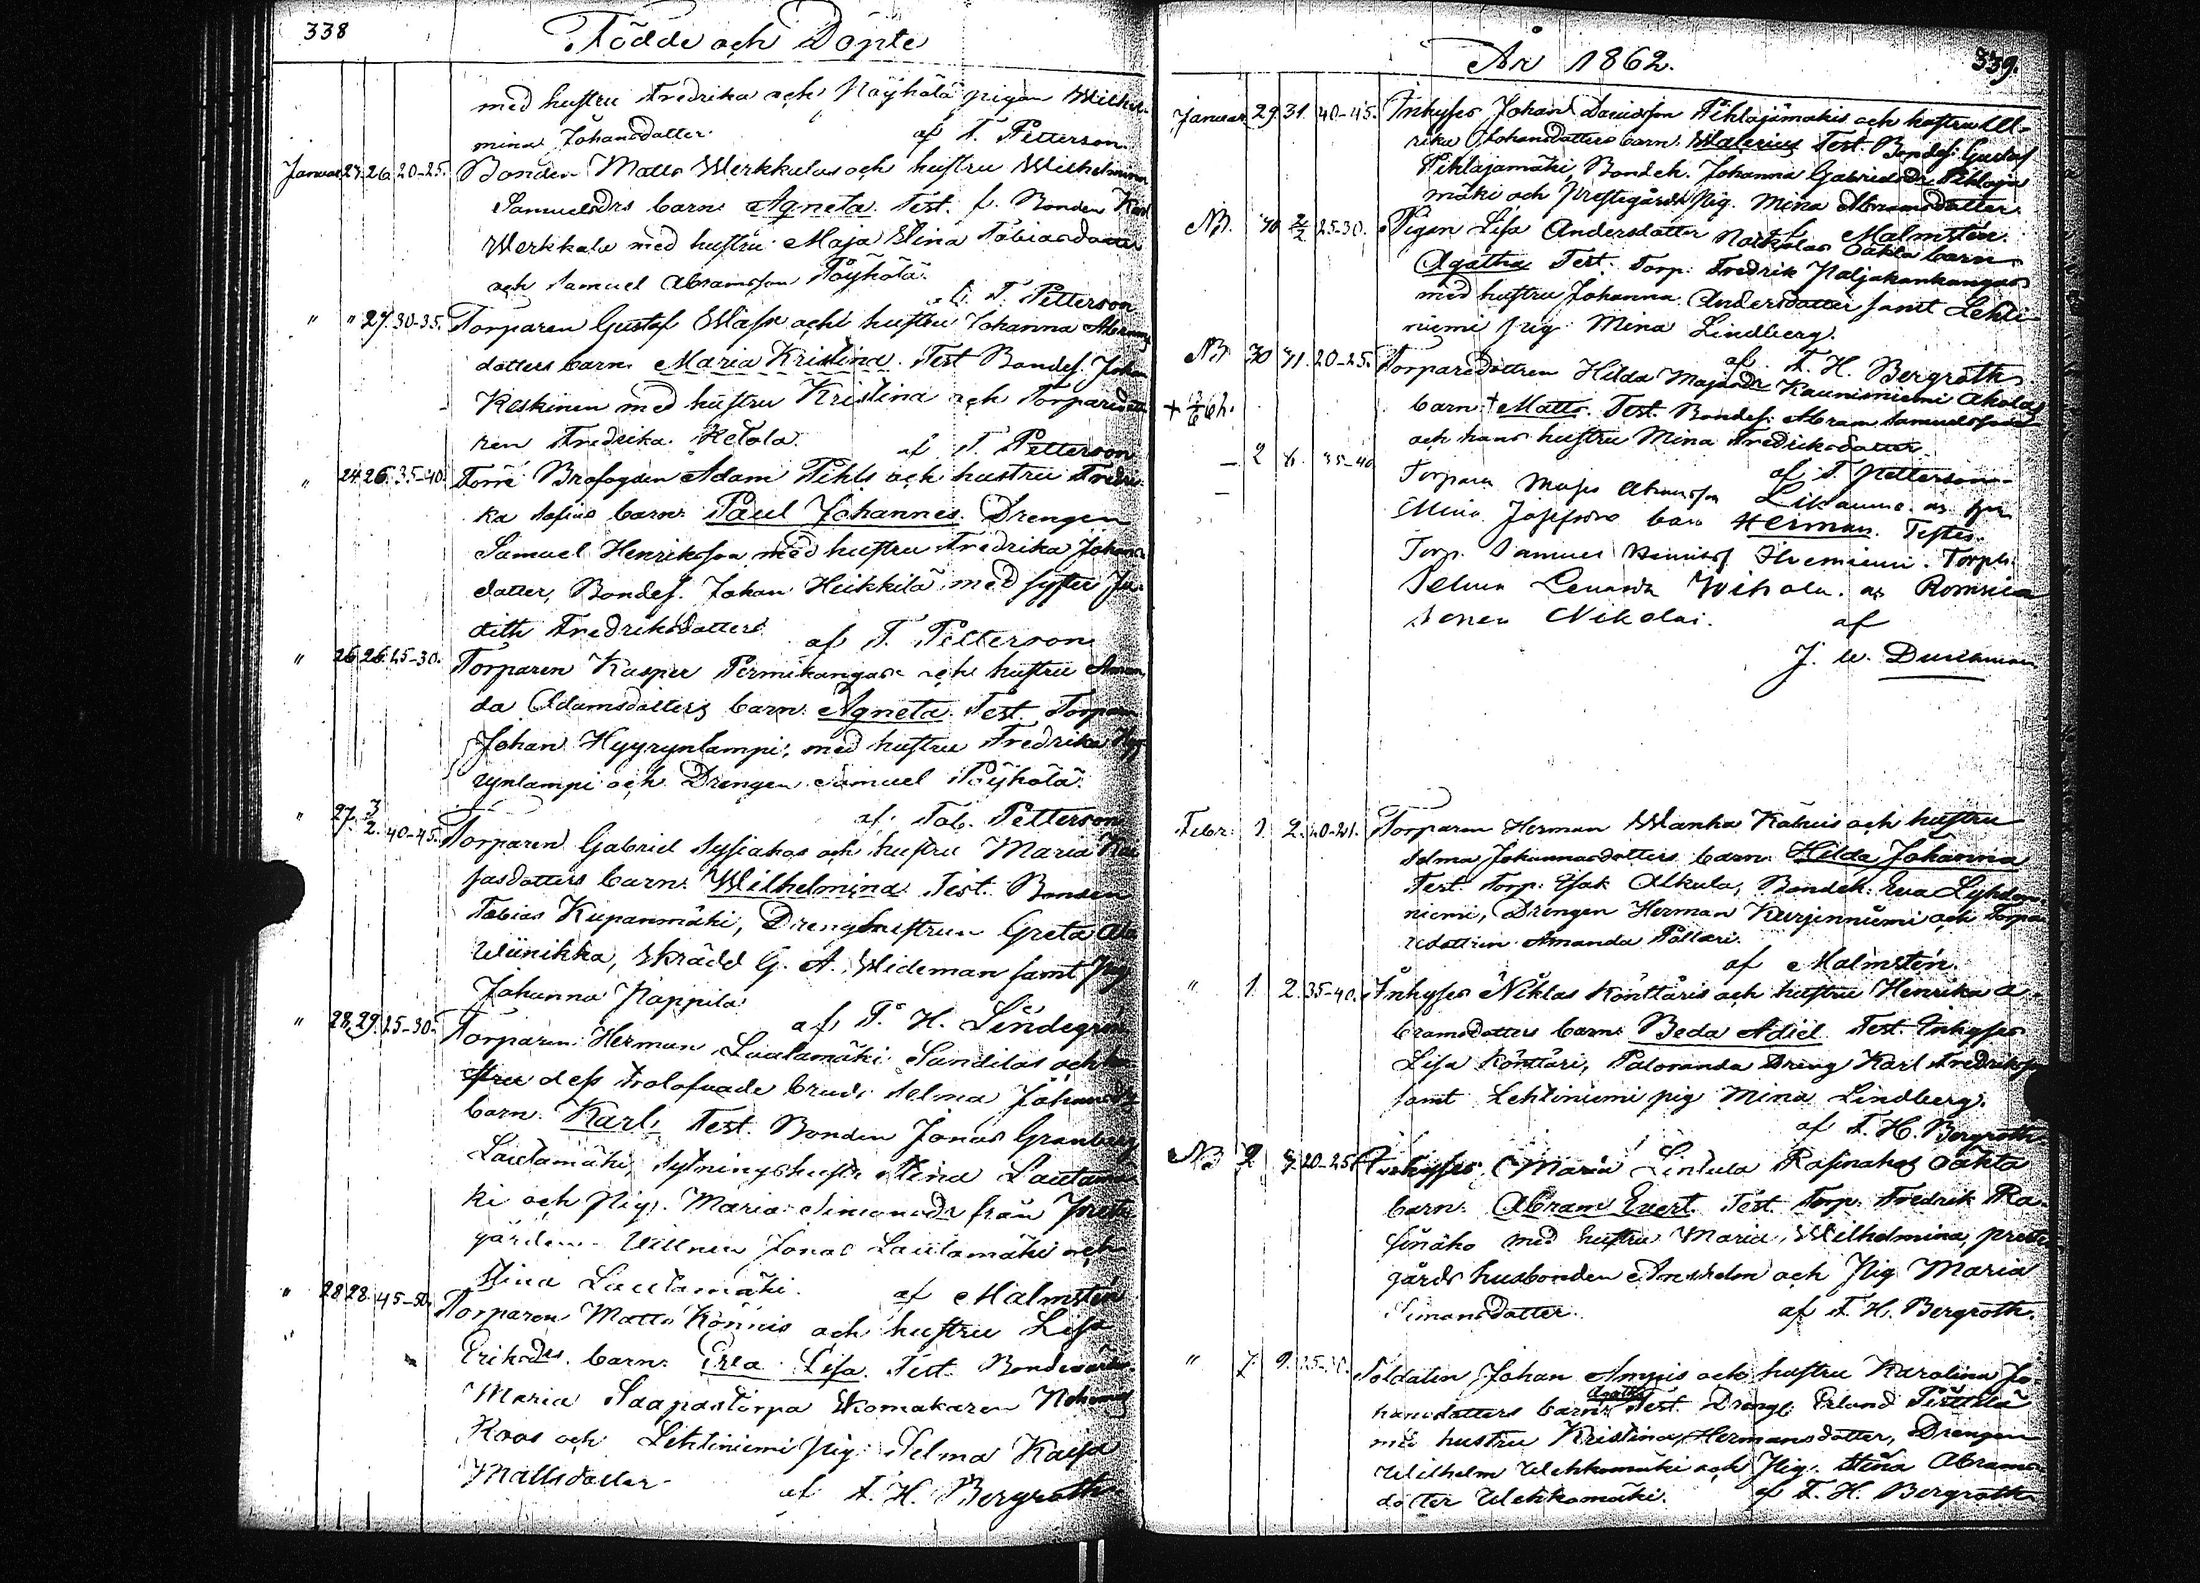 338
Födde och Döpte
med hustru Fredrika och Pöyhölä pigan Wilhel-
mina Johansdatter. af T. Petterson
Januar 25. 26. 20-25. Bonden Matts Werkkalas och hustru Wilhelmina
Samuelsdrs barn Agneta. Test. f. Bonden Karl
Werkkala med hustru Maja Stina Tobiasdatter
och Samuel Abramsson Pöyhölä.
af T. Petterson
" " 27. 30-35. Torparen Gustaf och hustru Johanna Abrams
datters barn Maria Kristina. Test Bondes. Johan
Keskinen med hustru Kristina och Torparedott
ren Fredrika Ketola. af T. Petterson
" 24 26. 35-40. Förre Brofogden Adam Pihls och hustru Fredri-
ka Sofias barn Paul Johannes. Drengen
Samuel Henriksson med hustru Fredrika Johans-
datter, Bondes. Johan Heikkilä med syster Ju-
dith Fredriksdatter. af T. Petterson
" 26 26. 25-30. Torparen Kasper Permikangas och hustru Aman
da Adamsdatters barn. Agneta. Test. Torparen
Johan Hyyrynlampi, med hustru Fredrika Hyy
rynlampi och Drengen Samuel Pöyhölä.
af Tob. Petterson
" 27. 3/2. 40-45. Torparen Gabriel Sysiahos och hustru Maria Ka
jsasdotters barn. Wilhelmina. Test. Bonden
Tobias Kupanmäki, Drenghustrun Greta Ala
Wiinikka, Skrädd G. A. Wideman samt Pig
Johanna Pappila.
af T. H. Lindegren
" 28. 29. 25-30. Torparen Herman Lautamäki Sandilas och hu
stru dess trolofvade brud. Selma Johansdr
barn. Karl. Test. Bonden Jonas Granberg
Lautamäki, Sytningshustr Stina Lautamä
ki och Pig. Maria Simonsdr från Preste
gården. Jonas Lautamäki och
Stina Lautamäki. af Malmstén
" 28 28. 45-50. Torparen Matts Könnis och hustru Lisa
Eriksdrs barn. Eva Lisa. Test. Bondevärd.
Maria Saapastorpa Skomakaren
Roos och Lehtiniemi pig. Selma Kaisa
Mattsdatter. af T. H. Bergroth
År 1862. 339.
Januar 29 31. 40-45. Inhyses Johan Davidsson Pihlajamäkis och hustru Ul-
rika Johansdatters barn. Walerius Test. Bondes. Gustaf
Pihlajamäki, Bondeh. Johanna Gabrielsdr Pihlaja
mäki och Prestegårds Pig. Mina Abramsdatter.
af Malmstén.
NB. 30 2/2 25-30. Pigan Lisa Andersdatter oäkta barn
Agatha Test. Torp. Fredrik Paljakankangas
med hustru Johanna Andersdatter samt Lehti-
niemi pig Mina Lindberg.
af T. H. Bergroth
NB 30 31. 20-25. Torparedottren Hilda Majasdr Kaunisniemi oäkta
+ 13/6 62. barn. + Matts. Test. Bondes. Abram Samuelsson
och hans hustru Mina Fredriksdatter.
af T. Petterson
- 2 8. 35-40 Torparn Abramsson och hu
Mina Josefsdrs barn Herman. Testes.
Torp. Samuel Torph.
Selma
Nikolai. af
J. W. Durchman
Febr. 1. 2. 20-21. Torparen Herman Wanha Kähuis och hustru
Selma Johannasdotters barn. Hilda Johanna
Test. Torp. Isak Alkula, Bondeh. Eva
niemi, Drengen Herman Kurjenniemi och Torpa
redottrin Amanda Pollari.
af Malmstén.
" 1. 2. 35-40. Inhyses Niklas Könttäris och hustru Henrika A-
bramsdotters barn. Beda Adiel. Test. Inhyses
Lisa Könttäri, Paloranda Dreng Karl Fredriksson
samt Lehtiniemi pig Mina Lindberg.
af T. H. Bergroth
NB 2 3. 20-25. Inhyses Maria Lintula Rasinahos oäkta
barn. Abram Evert. Test. Torp. Fredrik Ra-
sinaho med hustru Maria Wilhelmina, preste
gårds husbonden och Pig Maria
Simonsdatter. af T. H. Bergroth.
" 7. 9. 25-30. Soldaten Johan Ampuis och hustru Karolina Jo-
hansdatters barn. Agatha Test. Drengs. Erland Perttilä
med hustru Kristina Hermansdatter, Drengen
Wilhelm Wehkomäki och Pig. Stina Abrams-
datter Wehkomäki. af T. H. Bergroth